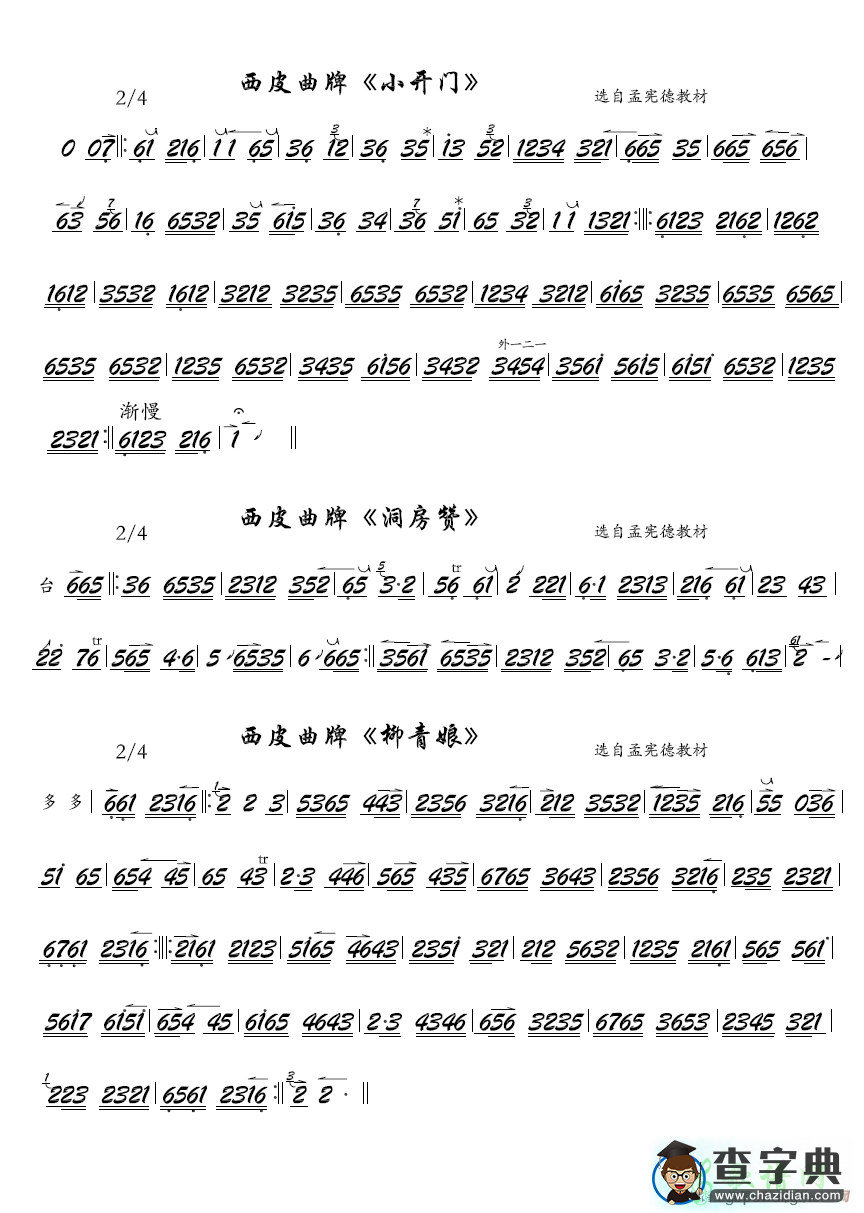 西皮曲牌《小开门》
2/4 选自孟宪德教材
0 07̣‖:6̣1 216̣|1 1 6̣5|36̣ 12|36̣ 35|i3 52|1234 321|6̣65 35|665 656|
63 56|16̣ 6532|35 6i5|36̣ 34|36 5i|65 32|1 1 1321:‖:6̣123 216̣2|126̣2
16̣12|3532 16̣12|3212 3235|6535 6532|1234 3212|6i65 3235|6535 6565|
外一二一
6535 6532|1235 6532|3435 6i56|3432 3454|356i 56i5|6i5i 6532|1235
渐慢
2321:‖6̣123 216̣|1 ‖
西皮曲牌《洞房赞》
2/4 选自孟宪德教材
台 665‖:36 6535|2312 352|6̣5 3·2|56 6̣1|2 221|6̣·1 2313|216̣ 6̣1|23 43|
22 76|565 4·6|5 6535|6 665:‖356i 6535|2312 352|6̣5 3·2|5·6̣ 6̣13|2 -
西皮曲牌《柳青娘》
2/4 选自孟宪德教材
多 多| 6̣6̣1 2316̣‖:2 2 3|5365 443|2356 3216̣|212 3532|1235 216̣|55 036|
5i 65|654 45|65 43|2·3 446|565 435|6765 3643|2356 3216̣|235 2321|
6̣7̣6̣1 2316̣:‖:216̣1 2123|5i65 4643|235i 321|212 5632|1235 216̣1|565 56i|
56i7 6i5i|654 45|6i65 4643|2·3 4346|656 3235|6765 3653|2345 321|
223 2321|6̣56̣1 2316̣:‖2 2 · ‖
查字典
www.chazidian.com